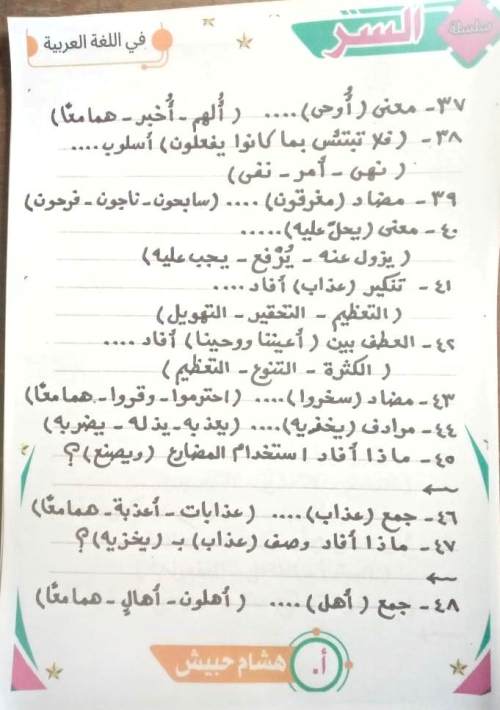 سلسلة
السر
في اللغة العربية
٣٧- معنى (أُوحى) .... (أُلهم - أُخبر - همامعًا)
٣٨- (فلا تبتئس بما كانوا يفعلون) أسلوب ....
(نهى - أمر - نفى)
٣٩- مضاد (مغرقون) .... (سابحون - ناجون - فرحون)
٤٠- معنى (يحلّ عليه) .....
(يزول عنه - يُرْفع - يجب عليه)
٤١- تنكير (عذاب) أفاد ....
(التعظيم - التحقير - التهويل)
٤٢- العطف بين (أعيننا ووحينا) أفاد ....
(الكثرة - التنوع - التعظيم)
٤٣- مضاد (سخروا) .... (احترموا - وقروا - همامعًا)
٤٤- مرادف (يخزيه) .... (يعذبه - يذله - يضربه)
٤٥- ماذا أفاد استخدام المضارع (ويصنع)؟
←
٤٦- جمع (عذاب) .... (عذابات - أعذبة - همامعًا)
٤٧- ماذا أفاد وصف (عذاب) بـ (يخزيه)؟
←
٤٨- جمع (أهل) .... (أهلون - أهالٍ - همامعًا)
أ. هشام حبيش